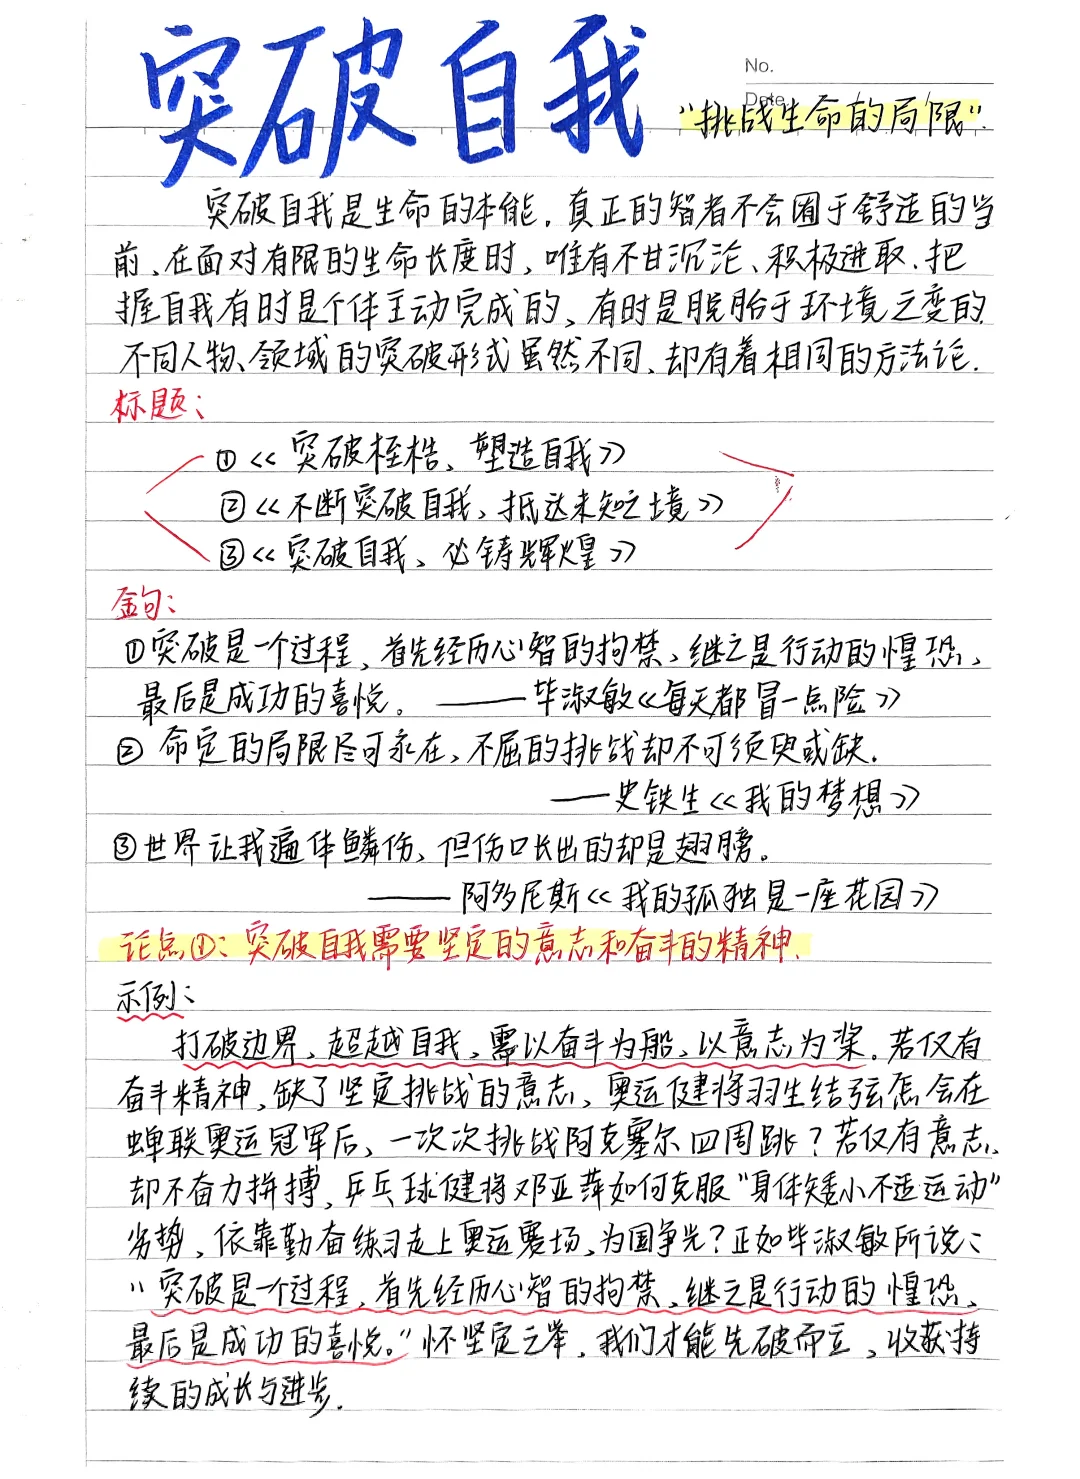 突破自我
No.
Date
"挑战生命的局限".
突破自我是生命的本能.真正的智者不会囿于舒适的当
前、在面对有限的生命长度时，唯有不甘沉沦、积极进取.把
握自我有时是个体主动完成的、有时是脱胎于环境之变的.
不同人物、领域的突破形式虽然不同、却有着相同的方法论.
标题：
①《突破桎梏、塑造自我》
②《不断突破自我、抵达未知之境》
③《突破自我、必铸辉煌》
金句：
①突破是一个过程，首先经历心智的拘禁、继之是行动的惶恐、
最后是成功的喜悦。——毕淑敏《每天都冒一点险》
② 命定的局限尽可永在、不屈的挑战却不可须臾或缺.
——史铁生《我的梦想》
③世界让我遍体鳞伤、但伤口长出的却是翅膀。
——阿多尼斯《我的孤独是一座花园》
论点①：突破自我需要坚定的意志和奋斗的精神.
示例：
打破边界、超越自我，需以奋斗为船、以意志为桨.若仅有
奋斗精神、缺了坚定挑战的意志、奥运健将羽生结弦怎会在
蝉联奥运冠军后、一次次挑战阿克塞尔四周跳？若仅有意志、
却不奋力拼搏、乒乓球健将邓亚萍如何克服"身体矮小不适运动"
劣势、依靠勤奋练习走上奥运赛场、为国争光？正如毕淑敏所说：
"突破是一个过程，首先经历心智的拘禁、继之是行动的惶恐、
最后是成功的喜悦。"怀坚定之举、我们才能先破而立、收获持
续的成长与进步.